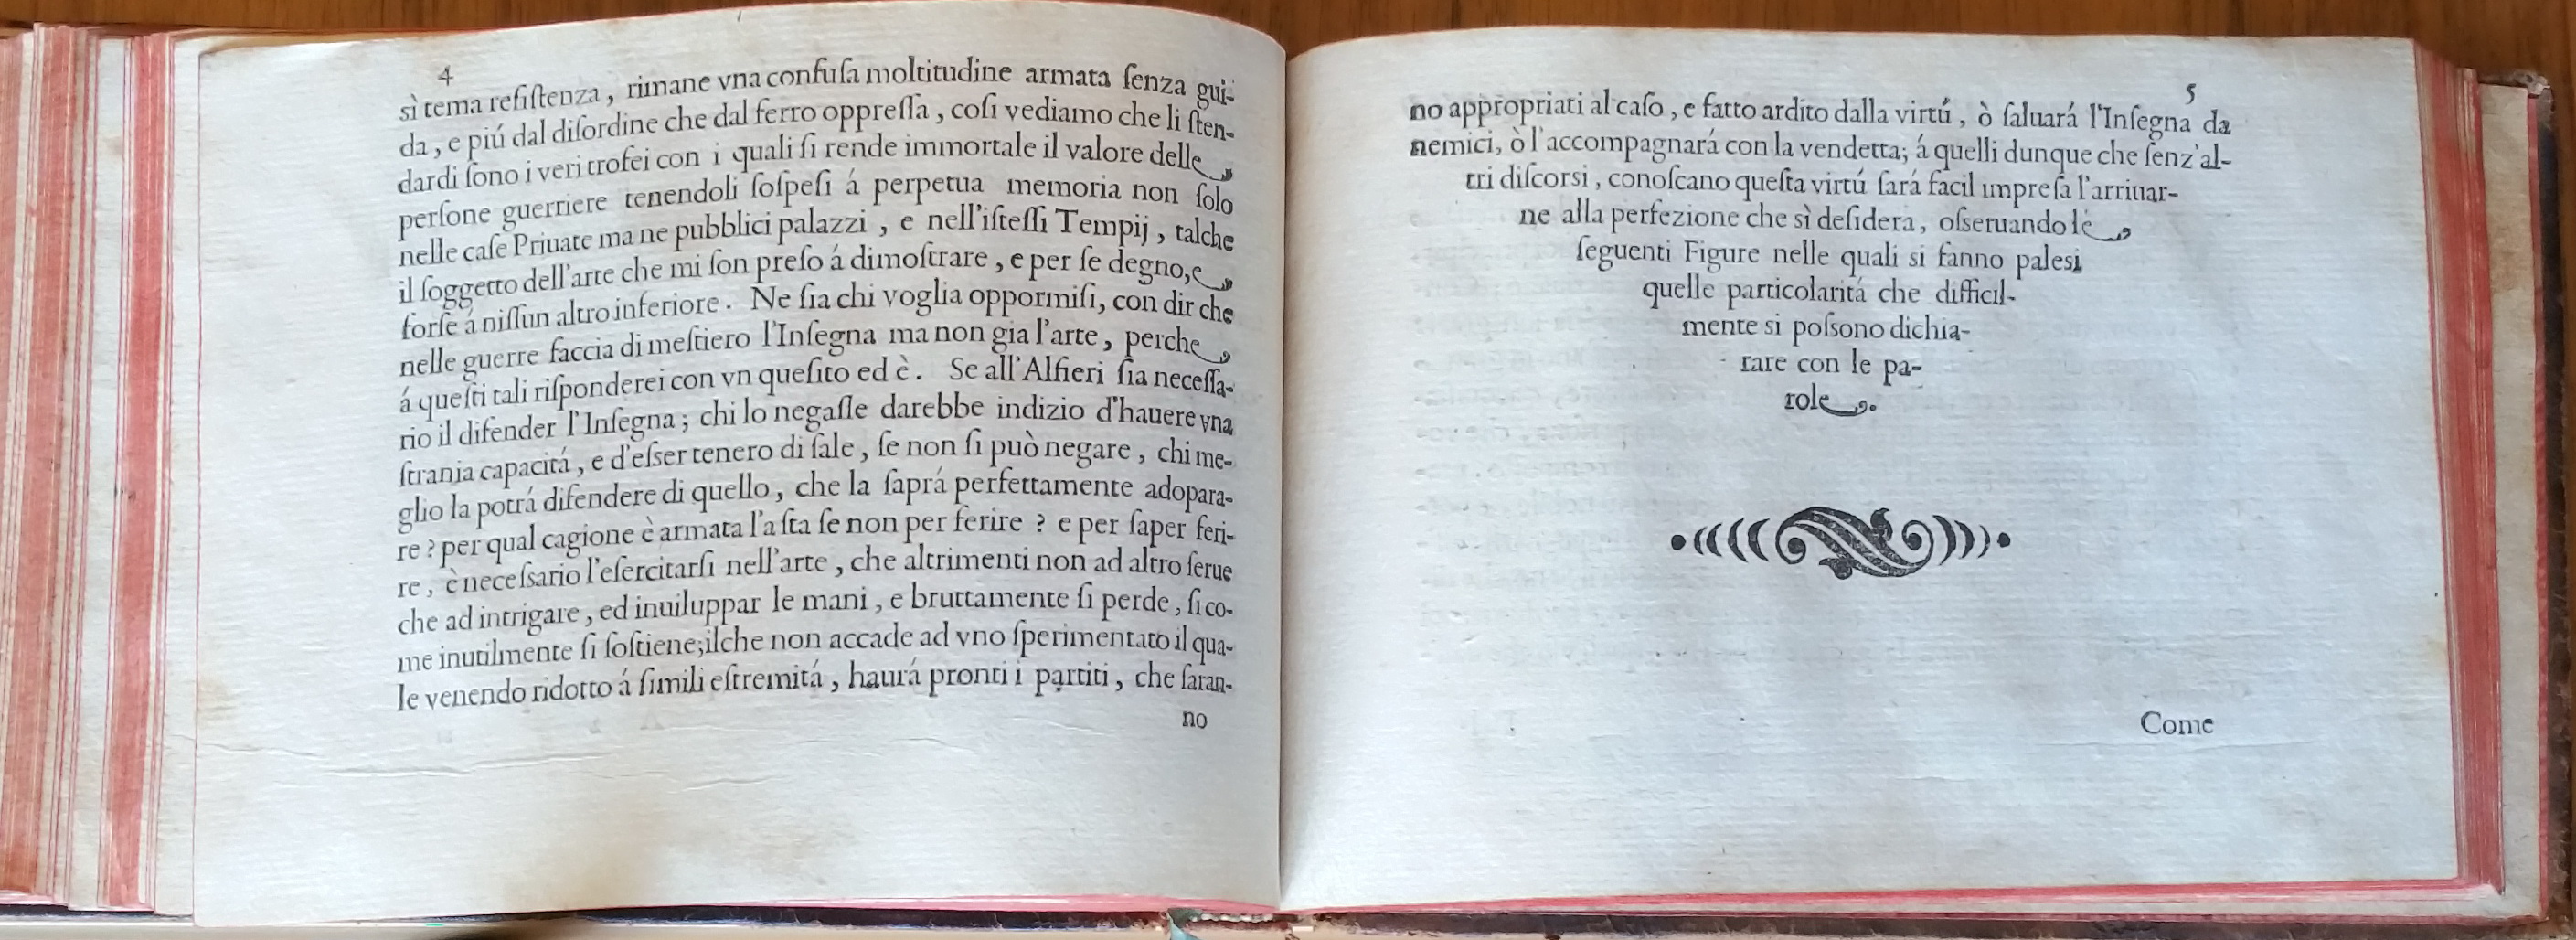 4
sì tema reſiſtenza, rimane vna confuſa moltitudine armata ſenza gui-
da, e piú dal diſordine che dal ferro oppreſſa, coſi vediamo che li ſten-
dardi ſono i veri trofei con i quali ſi rende immortale il valore delle
perſone guerriere tenendoli ſoſpeſi á perpetua memoria non ſolo
nelle caſe Priuate ma ne pubblici palazzi, e nell'iſteſſi Tempij, talche
il ſoggetto dell'arte che mi ſon preſo á dimoſtrare, e per ſe degno, e
forſe á niſſun altro inferiore. Ne ſia chi voglia oppormiſi, con dir che
nelle guerre faccia di meſtiero l'Inſegna ma non gia l'arte, perche
á queſti tali riſponderei con vn queſito ed è. Se all'Alfieri ſia neceſſa-
rio il difender l'Inſegna; chi lo negaſſe darebbe indizio d'hauere vna
ſtrania capacitá, e d'eſser tenero di ſale, ſe non ſi può negare, chi me-
glio la potrá difendere di quello, che la ſaprá perfettamente adopara-
re? per qual cagione è armata l'aſta ſe non per ferire? e per ſaper feri-
re, è neceſsario l'eſercitarſi nell'arte, che altrimenti non ad altro ſerue
che ad intrigare, ed inuiluppar le mani, e bruttamente ſi perde, ſi co-
me inutilmente ſi ſoſtiene; ilche non accade ad vno ſperimentato il qua-
le venendo ridotto á ſimili eſtremitá, haurá pronti i partiti, che ſaran-
no
5
no appropriati al caſo, e fatto ardito dalla virtú, ò ſaluará l'Inſegna da
nemici, ò l'accompagnará con la vendetta; á quelli dunque che ſenz'al-
tri diſcorsi, conoſcano queſta virtú ſará facil impreſa l'arriuar-
ne alla perfezione che sì deſidera, oſseruando le
ſeguenti Figure nelle quali si fanno palesi
quelle particolaritá che difficil-
mente si poſsono dichia-
rare con le pa-
role.
Come